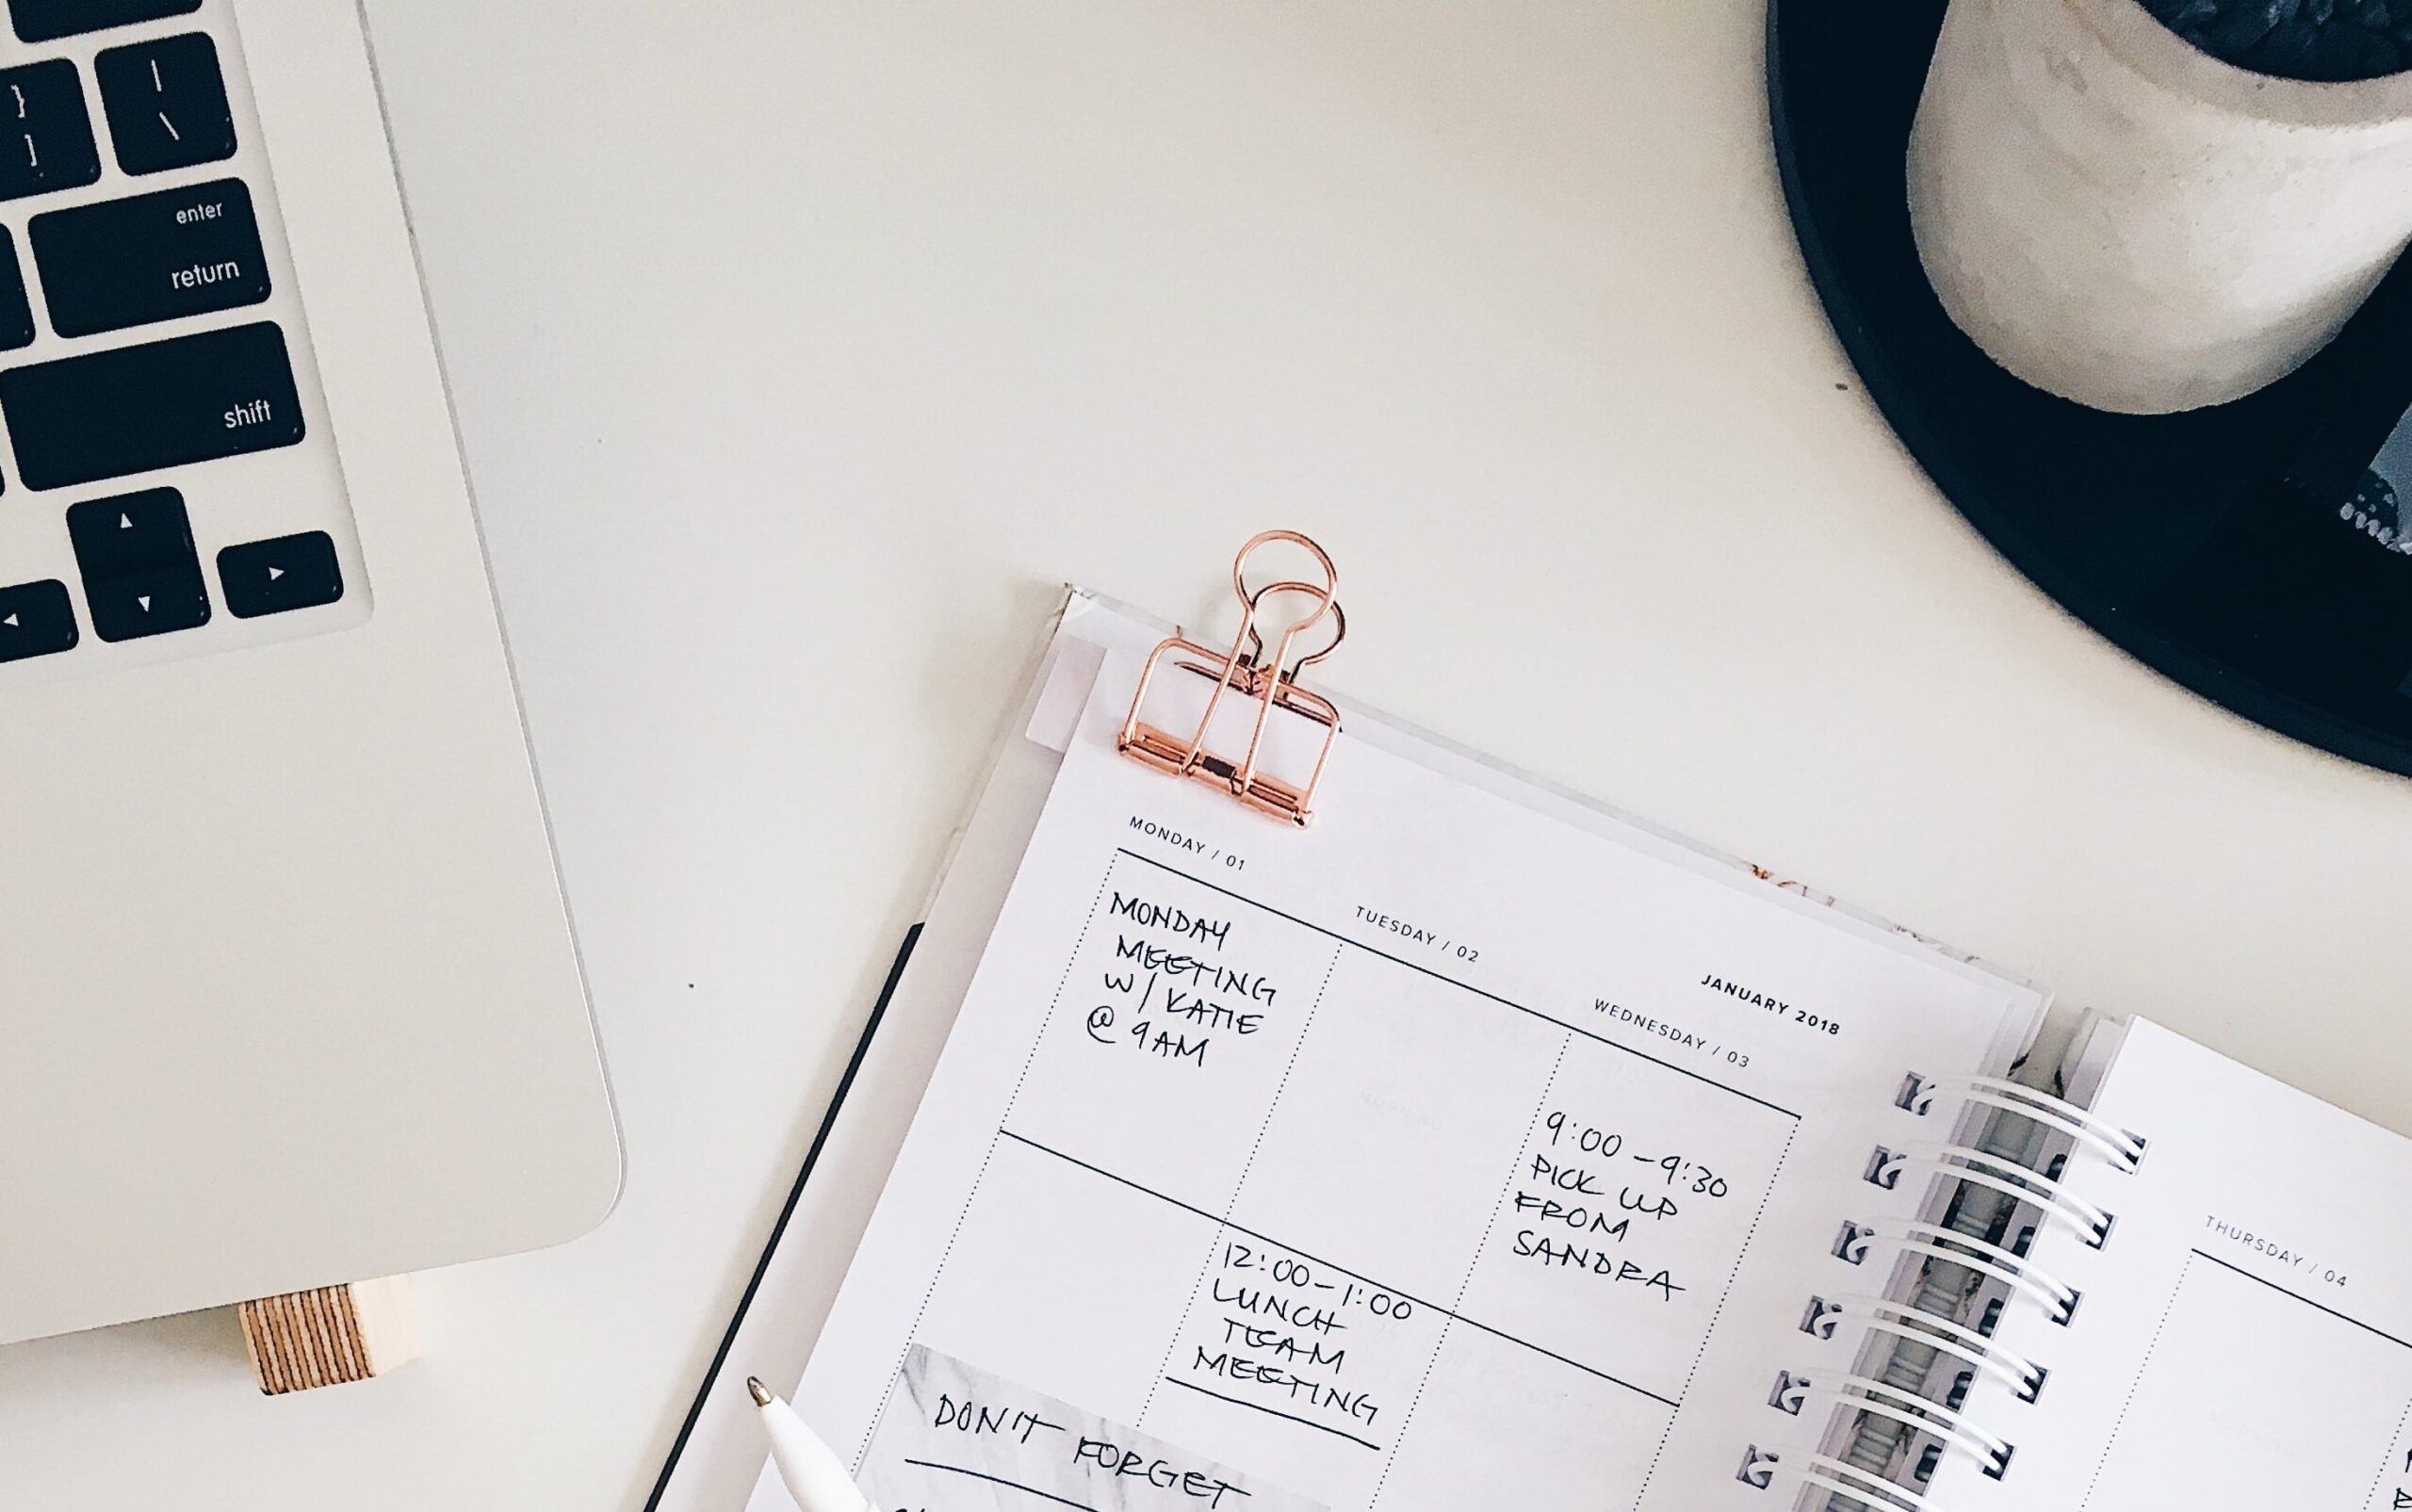 }
]
|
\
enter
return
shift
JANUARY 2018
MONDAY / 01
MONDAY
MEETING
W/ KATIE
@ 9AM
TUESDAY / 02
12:00-1:00
LUNCH
TEAM
MEETING
WEDNESDAY / 03
9:00-9:30
PICK UP
FROM
SANDRA
DON'T FORGET
THURSDAY / 04